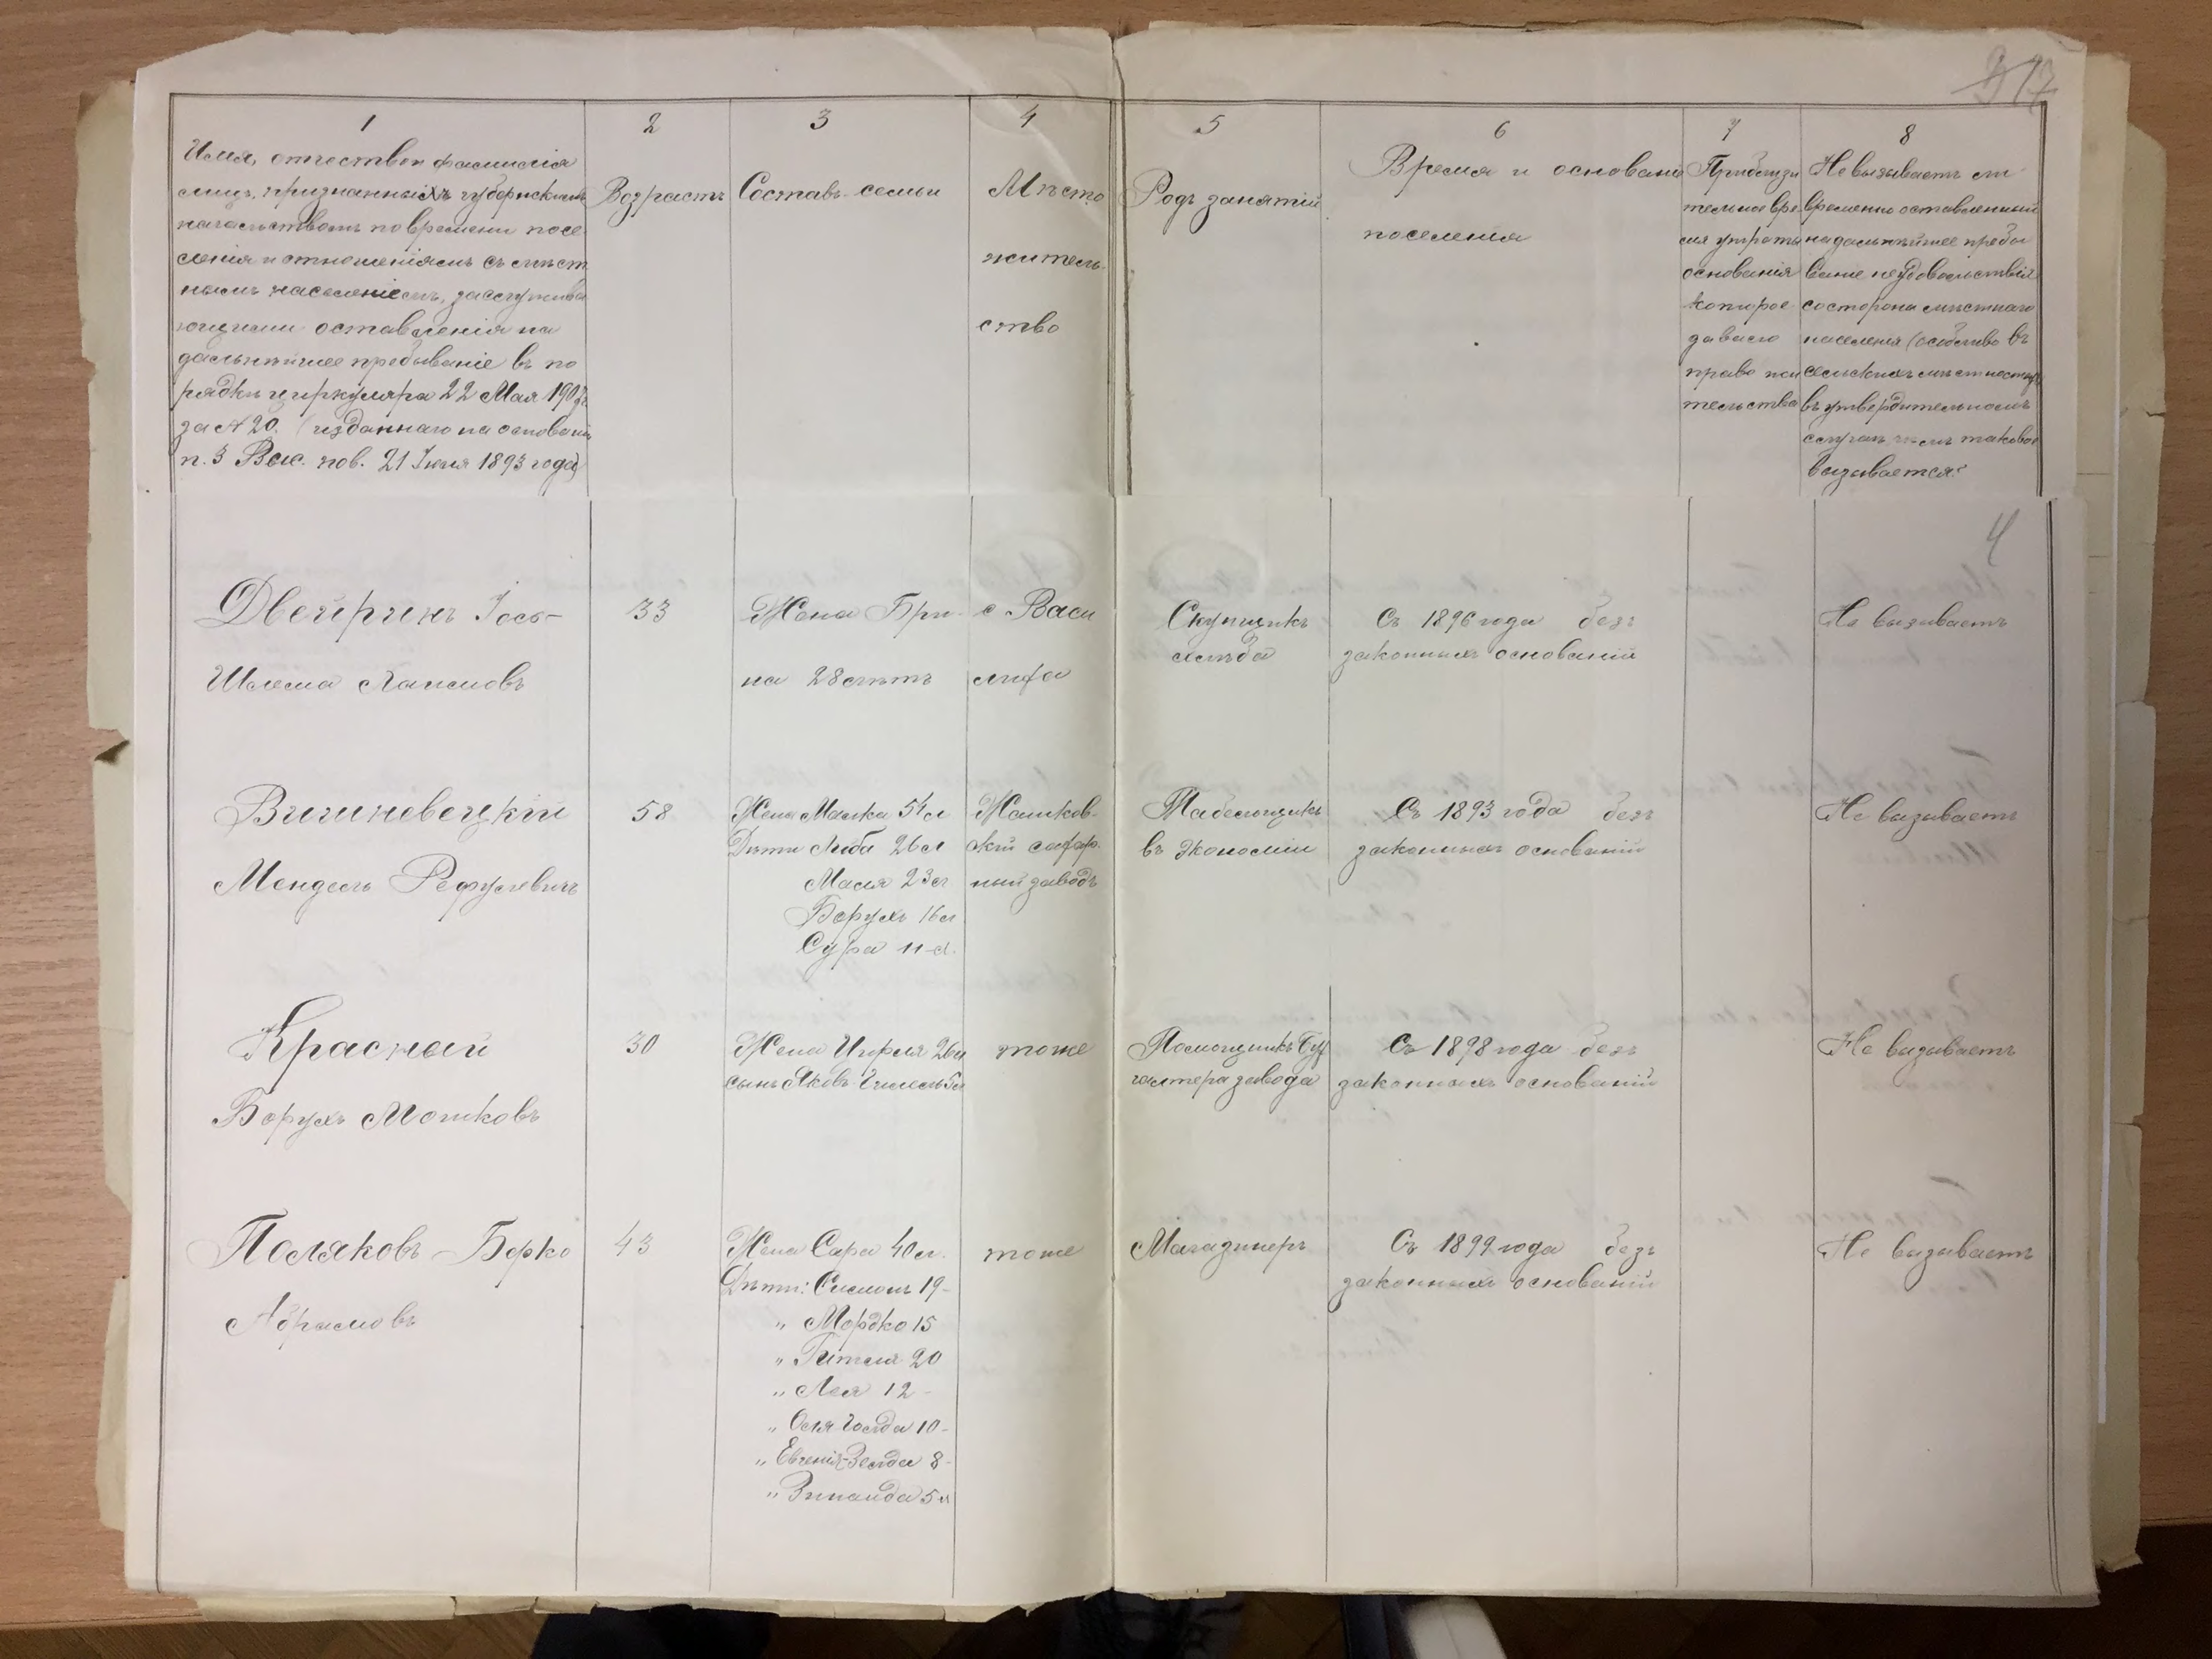 17
1
Имя, отчество и фамилія
лицъ, признанныхъ губернскимъ
начальствомъ по времени посе
ленія и отношеніямъ съ мѣст
нымъ населеніемъ, заслужива
ющими оставленія на
дальнѣйшее пребываніе въ по
рядкѣ циркуляра 22 Мая 1907г.
за №20. (изданнаго на основаніи
п. 3 Выс. пов. 21 Іюня 1893 года)
2
Возрастъ
3
Составъ семьи
4
Мѣсто
житель
ство
5
Родъ занятій
6
Время и основаніе
поселенія
7
Приблизи
тельное вре
мя утраты
основанія
которое
давало
право жи
тельства
8
Не вызываетъ ли
временно оставленный
на дальнѣйшее пребы
ваніе неудовольствія
со стороны мѣстнаго
населенія (особенно въ
сельскихъ мѣстностяхъ
въ утвердительномъ
случаѣ чѣмъ таковое
вызывается?
4
Двейринъ Іось-
Шлема Лапмовъ
33
Жена Бри-
на 28 лѣтъ
с Васи
лифа
Скупщикъ
хлѣба
Съ 1896 года безъ
законныхъ основаній
Не вызываетъ
Вишневецкій
Мендель Рефулевичъ
58
Жена Малка 51 л
Дѣти Люба 26 л
Маля 23 л
Борухъ 16 л
Сура 11 л.
Жашков-
скій сахар.
ный заводъ
Табельщикъ
въ экономіи
Съ 1893 года безъ
законныхъ основаній
Не вызываетъ
Красный
Борухъ Мошковъ
30
Жена 26 л
сынъ Яковъ
тоже
Помощникъ Бух
галтера завода
Съ 1898 года безъ
законныхъ основаній
Не вызываетъ
Поляковъ - Берко
Абрамовъ
43
Жена Сара 40 л.
Дѣти: Симонъ 19-
" Мордко 15
" Гителя 20
" Лея 12-
" Голда 10-
" Евгенія-Зелда 8-
" Зинаида 5 л
тоже
Магазинеръ
Съ 1899 года безъ
законныхъ основаній
Не вызываетъ